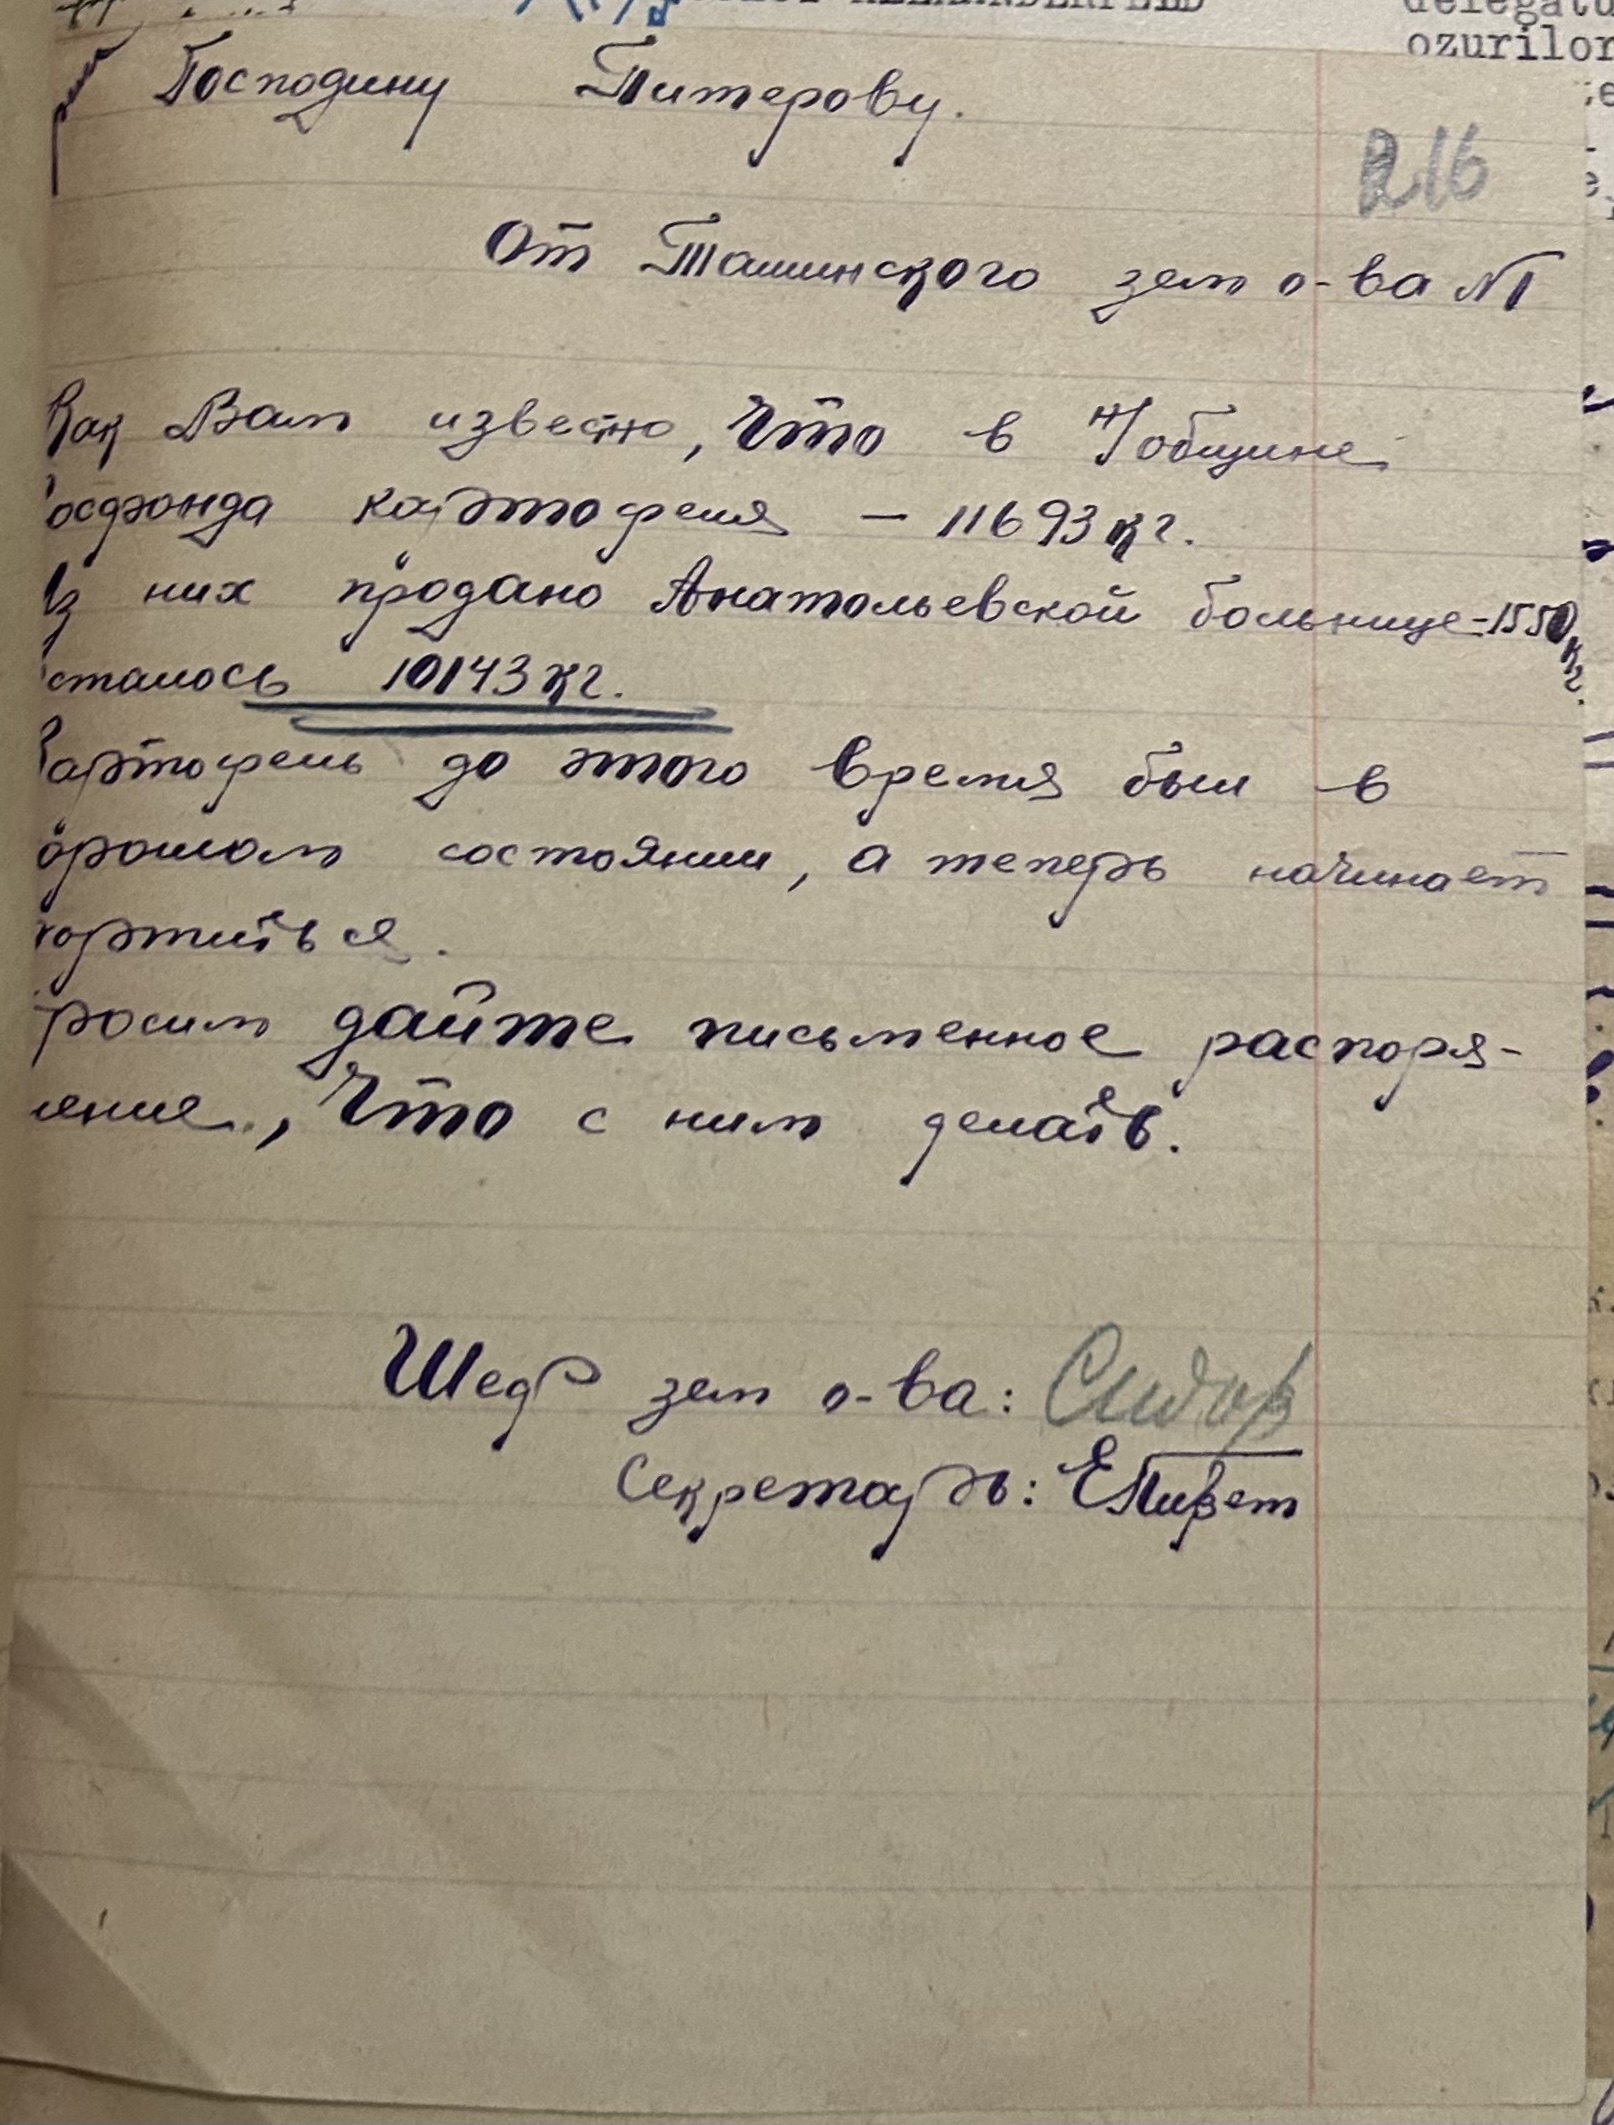 ALEXANDERFELD
ozurilor
Господину Питерову.
216
От Ташинского зем о-ва №1
Как Вам известно, что в н/общине
осфонда картофеля — 11693 кг.
Из них продано Анатольевской больнице = 1550 кг.
сталось 10143 кг.
артофель до этого время был в
орошом состоянии, а теперь начинает
портиться.
росим дайте письменное распоря-
ение, что с ним делать.
Шеф зем о-ва: Сидор
Секретарь: